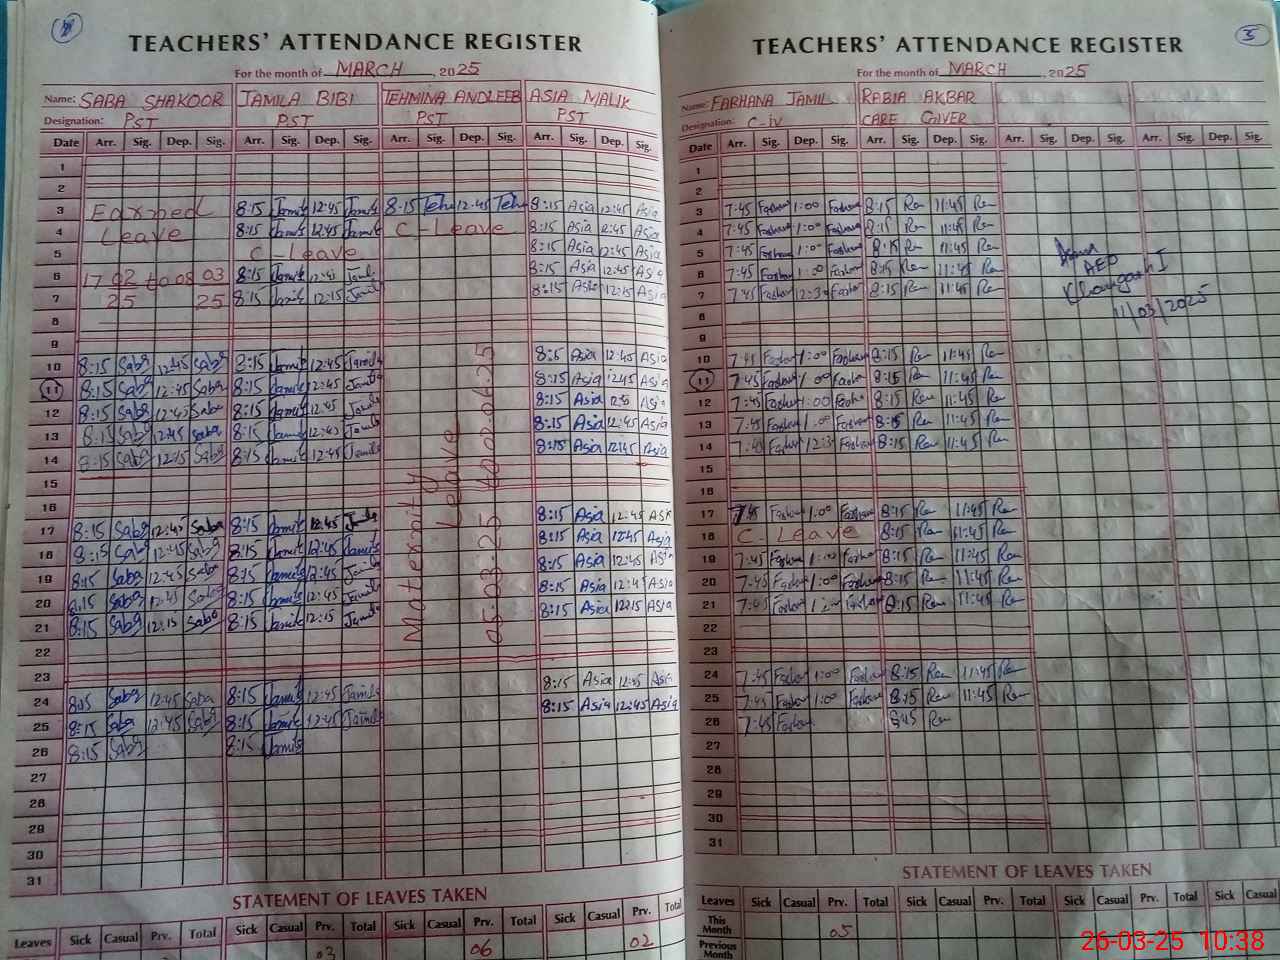 TEACHERS' ATTENDANCE REGISTER
For the month of MARCH, 2025
Name: SABA SHAKOOR JAMILA BIBI TEHMINA ANDLEEB ASIA MALIK
Designation: PST PST PST PST
Date Arr. Sig. Dep. Sig. Arr. Sig. Dep. Sig. Arr. Sig. Dep. Sig. Arr. Sig. Dep. Sig.
1
2
3 Earned 8:15 Jamila 12:45 Jamila 8:15 Teh 12:45 Teh 8:15 Asia 12:45 Asia
4 Leave 8:15 Jamila 12:45 Jamila C-Leave 8:15 Asia 12:45 Asia
5 C-Leave 8:15 Asia 12:45 Asia
6 17 02 to 08 03 8:15 Jamila 12:45 Jamila 8:15 Asia 12:45 Asia
7 25 25 8:15 Jamila 12:15 Jamila 8:15 Asia 12:15 Asia
8
9
10 8:15 Saba 12:45 Saba 8:15 Jamila 12:45 Jamila 8:15 Asia 12:45 Asia
11 8:15 Saba 12:45 Saba 8:15 Jamila 12:45 Jamila 8:15 Asia 12:45 Asia
12 8:15 Saba 12:45 Saba 8:15 Jamila 12:45 Jamila 8:15 Asia 12:45 Asia
13 8:15 Saba 12:45 Saba 8:15 Jamila 12:45 Jamila 8:15 Asia 12:45 Asia
14 8:15 Saba 12:15 Saba 8:15 Jamila 12:45 Jamila 8:15 Asia 12:45 Asia
15
16
17 8:15 Saba 12:45 Saba 8:15 Jamila 12:45 Jamila 8:15 Asia 12:45 Asia
18 8:15 Saba 12:45 Saba 8:15 Jamila 12:45 Jamila 8:15 Asia 12:45 Asia
19 8:15 Saba 12:45 Saba 8:15 Jamila 12:45 Jamila 8:15 Asia 12:45 Asia
20 8:15 Saba 12:45 Saba 8:15 Jamila 12:45 Jamila 8:15 Asia 12:45 Asia
21 8:15 Saba 12:15 Saba 8:15 Jamila 12:15 Jamila 8:15 Asia 12:15 Asia
22
23
24 8:15 Saba 12:45 Saba 8:15 Jamila 12:45 Jamila 8:15 Asia 12:45 Asia
25 8:15 Saba 12:45 Saba 8:15 Jamila 12:45 Jamila 8:15 Asia 12:45 Asia
26 8:15 Saba 8:15 Jamila
27
28
29
30
31
Maternity
Leave
05-03-25 to 02.06.25
STATEMENT OF LEAVES TAKEN
Leaves Sick Casual Prv. Total Sick Casual Prv. Total Sick Casual Prv. Total Sick Casual Prv. Total
03 06 02
5
TEACHERS' ATTENDANCE REGISTER
For the month of MARCH, 2025
Name: FARHANA JAMIL RABIA AKBAR
Designation: C-iv CARE GIVER
Date Arr. Sig. Dep. Sig. Arr. Sig. Dep. Sig. Arr. Sig. Dep. Sig. Arr. Sig. Dep. Sig.
1
2
3 7:45 Farhana 1:00 Farhana 8:15 11:45
4 7:45 Farhana 1:00 Farhana 8:15 11:45
5 7:45 Farhana 1:00 Farhana 8:15 11:45
6 7:45 Farhana 1:00 Farhana 8:15 11:45
7 7:45 Farhana 12:3 Farhana 8:15 11:45
8
9
10 7:45 Farhana 1:00 Farhana 8:15 11:45
11 7:45 Farhana 1:00 Farhana 8:15 11:45
12 7:45 Farhana 1:00 Farhana 8:15 11:45
13 7:45 Farhana 1:00 Farhana 8:15 11:45
14 7:45 Farhana 12:3 Farhana 8:15 11:45
15
16
17 7:45 Farhana 1:00 Farhana 8:15 11:45
18 C-Leave 8:15 11:45
19 7:45 Farhana 1:00 Farhana 8:15 11:45
20 7:45 Farhana 1:00 Farhana 8:15 11:45
21 7:45 Farhana Farhana 8:15 11:45
22
23
24 7:45 Farhana 1:00 Farhana 8:15 11:45
25 7:45 Farhana 1:00 Farhana 8:15 11:45
26 7:45 Farhana 8:45
27
28
29
30
31
AEO
Khangarh I
11/03/2025
STATEMENT OF LEAVES TAKEN
Leaves Sick Casual Prv. Total Sick Casual Prv. Total Sick Casual Prv. Total Sick Casual
This Month 05
Previous Month
26-03-25 10:38